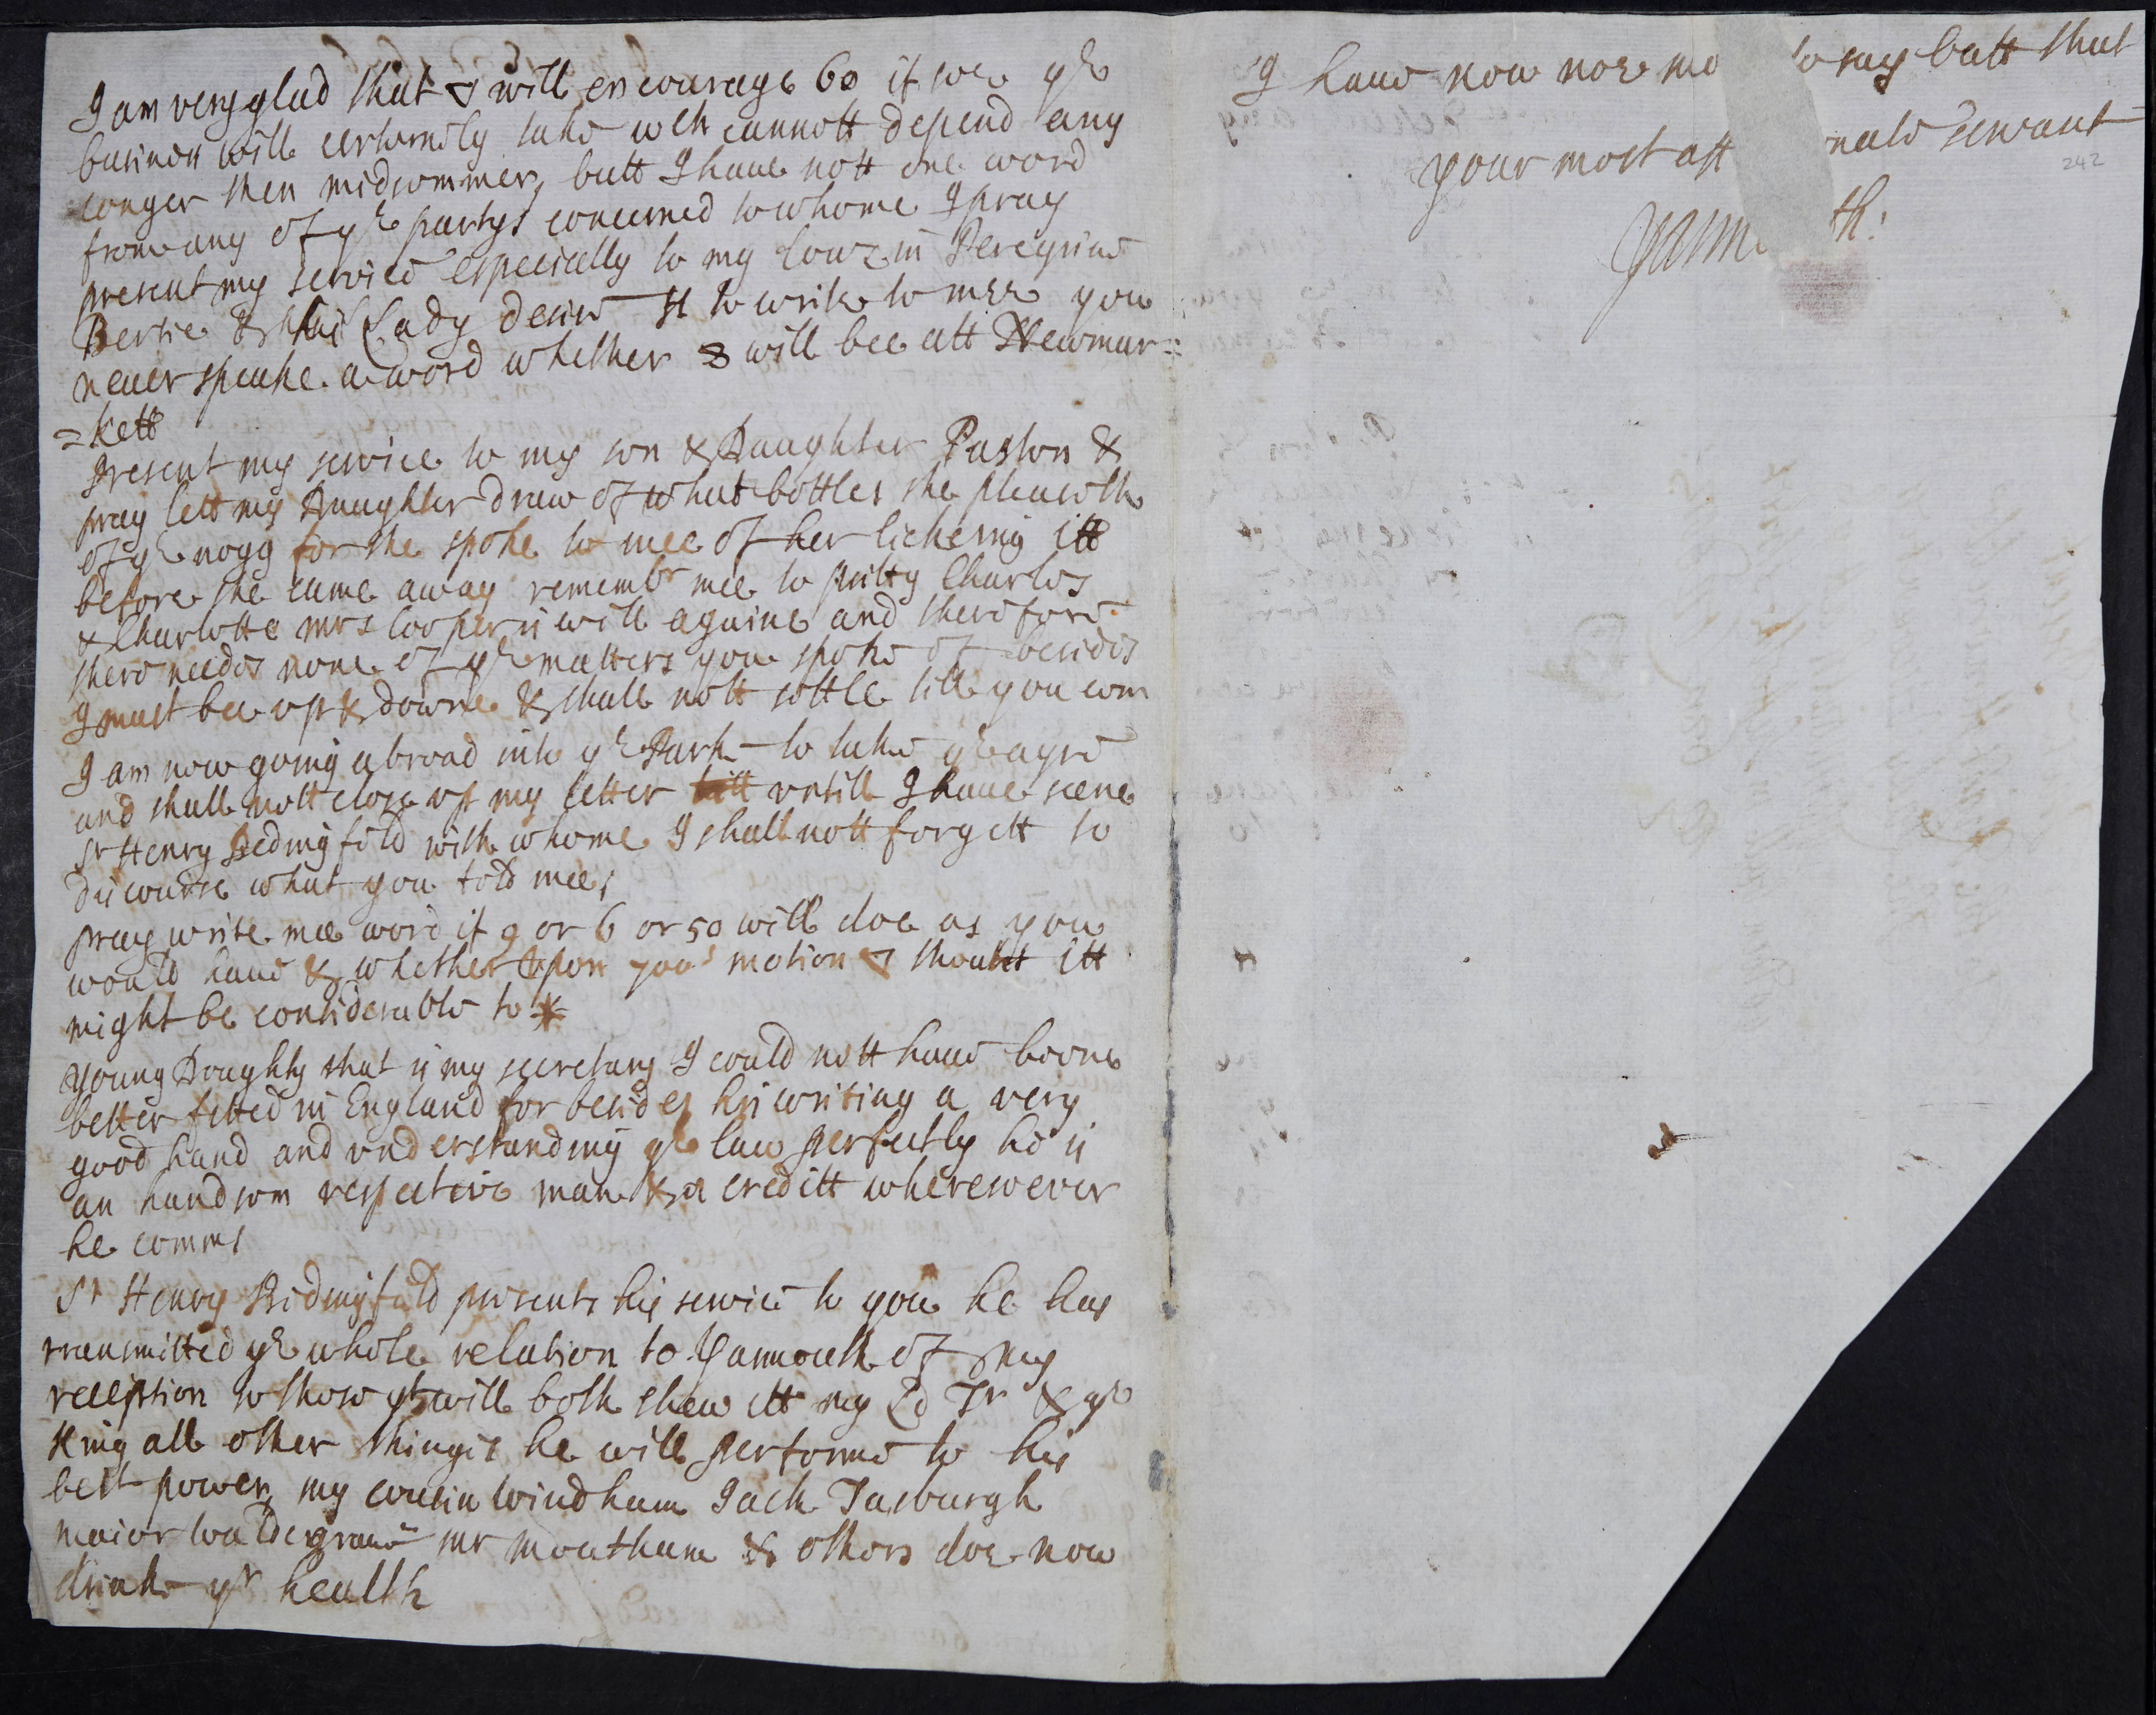 I am very glad that ▽ will encourage 60 if soe ye
businesse will certainly take wch cannott depend any
longer then midsommer, butt I haue nott one word
from any of ye partys concerned to whome I pray
present my service especially to my Couz in Peregrine
Bertie & his Lady desire to write to mee you
neuer speake a word whether 8 will bee att Newmar=
=kett
Present my service to my son & Daughter Paston &
pray lett my Daughter draw of what bottles she pleaseth
of ye nogg for she spoke to mee of her likeing itt
before she came away remembr mee to pritty Charles
& Charlotte mrs Cooper is will againe and therefore
there needes none of ye matters you spoke of besides
I must bee vp & downe & shall nott settle till you com
I am now going abroad into ye Park to take ye ayre
and shall nott close vp my letter till vntill I haue seene
Sr Henry Bedingfeild with whome I shall nott forgett to
discourse what you told mee,
pray write mee word if 9 or 6 or 50 will doe as you
would haue & whether vpon your motion ▽ thought itt
might be considerable to *
young Doughty that is my secretary I could nott haue beene
better fitted in England for besides his writing a very
good hand and vnderstanding ye law perfectly he is
an handsom respective man & a creditt wheresoever
he comms
Sr Henry Bedingfeild presents his service to you he has
transmitted ye whole relation to Yarmouth of my
reception to those yt will both shew itt my Ld Tr & ye
King all other thinges he will performe to his
best power, my cousin Windham Jack Tasburgh
maior Waldegraue mr Moutham & others doe now
drink yr health
I haue now noe mo to say butt that
your most aff nate servant
Yarmo th:
242